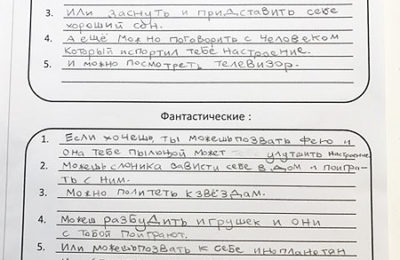 3. Или заснуть и придставить себе
хороший сон.
4. А ещё можно поговорить с человеком
Который испортил тебе настроение.
5. И можно посмотреть телевизор.
Фантастические :
1. Если хочешь ты можешь позвать фею и
она тебе пыльцой может улутшить настроение
2. Можешь слоника зависти себе в дом и поигра-
ть с ним.
3. Можно политеть к звёздам.
4. Можеш разбудить игрушек и они
с тобой поиграют.
5. Или можешь позвать к себе инопланетян